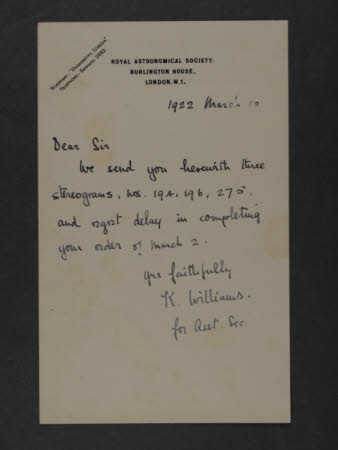 ROYAL ASTRONOMICAL SOCIETY.
BURLINGTON HOUSE,
LONDON. W.1.
1922 March
Dear Sir
We send you herewith three
stereograms, nos. 194, 196, 275.
and regret delay in completing
your order of March 2.
yrs faithfully
K. Williams.
for Asst. Sec.